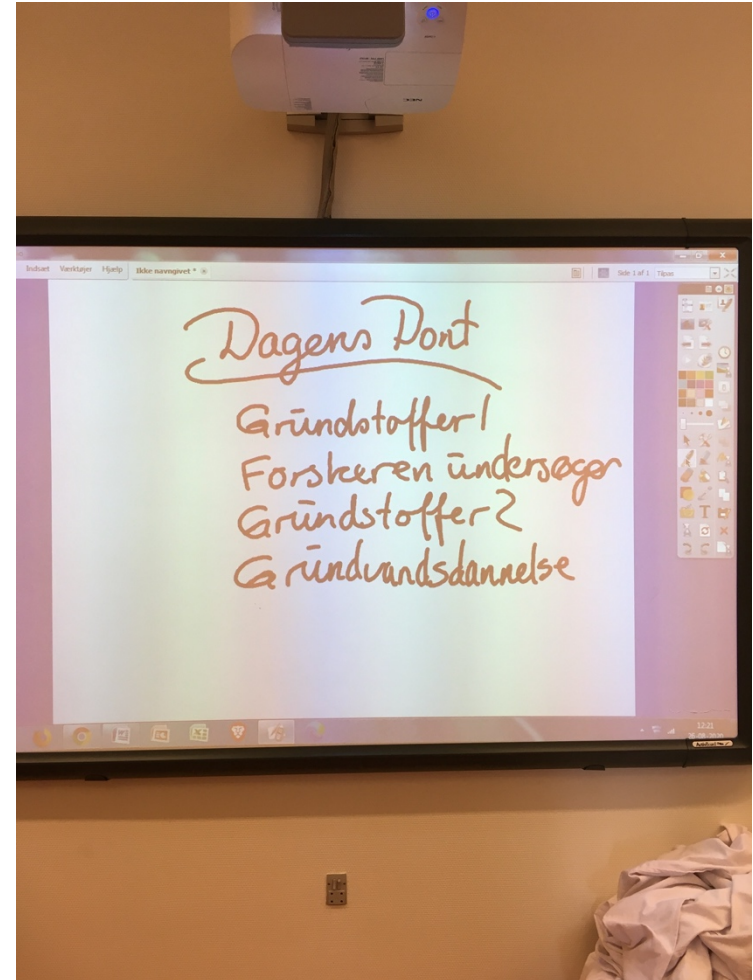 NEC
Indsæt Værktøjer Hjælp Ikke navngivet * Side 1 af 1 Tilpas
Dagens Dont
Grundstoffer 1
Forskeren undersøger
Grundstoffer 2
Grundvandsdannelse
12:21